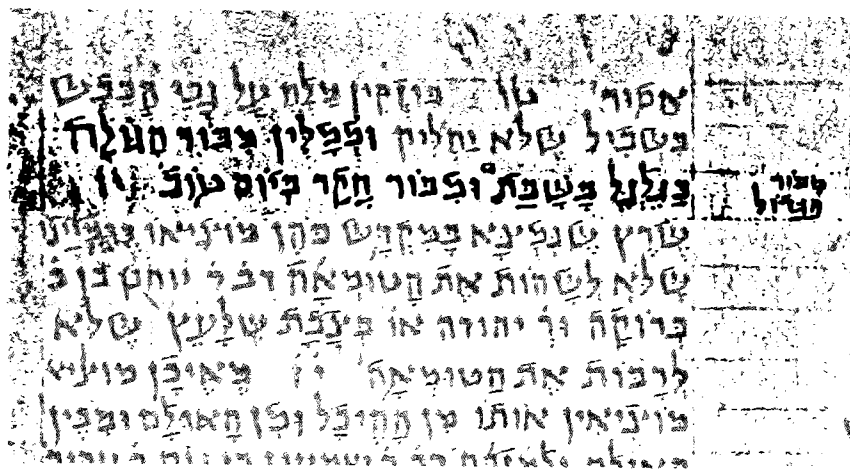 אסור' טו בוזקין מלח על גבי הכבש
בשביל שלא יחליק וממלין מבור הגולה
בגלגל בשבת ומבור הקר ביום טוב
מבור
הגדול
שרץ שנמצא במקדש כהן מוציאו בהמיינו
שלא לשהות את הטומאה דב' ר' יוחנן בן ב
ברוקה ור' יהודה או' בצבת שלעץ שלא
לרבות את הטומאה מאיכן מוציא
מוציאין אותו מן ההיכל ומן האולם ומבין